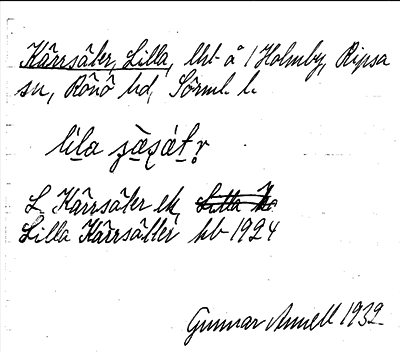 Kärrsäter, Lilla, lht å 1 Holmby, Ripsa
sn, Rönö hd, Sörml. l.
lila
L Kärrsäter ek,
Lilla Kärrsätter hb 1924
Gunnar Annell 1932